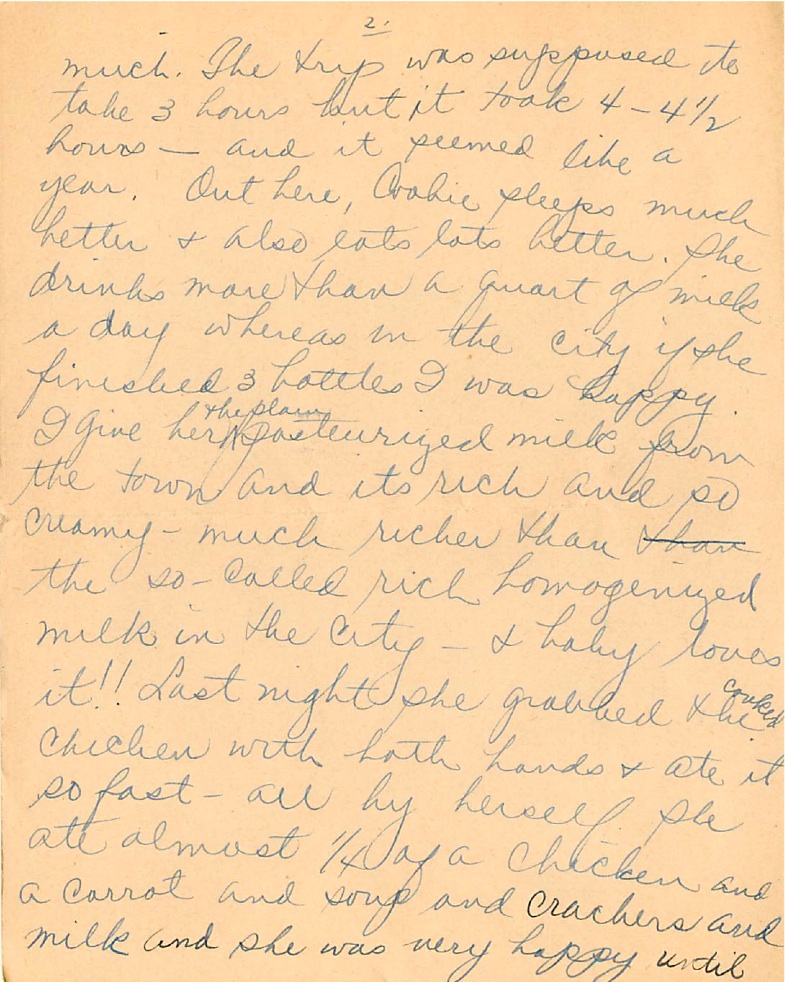 2.
much. The trip was supposed to
take 3 hours but it took 4 - 4 1/2
hours — and it seemed like a
year. Out here, Cookie sleeps much
better & also eats lots better. She
drinks more than a quart of milk
a day whereas in the city if she
finished 3 bottles I was happy.
I give her the plain pasteurized milk from
the town and its rich and so
creamy - much richer than than
the so-called rich homogenized
milk in the city - & baby loves
it!! Last night she grabbed the cooked
chicken with both hands & ate it
so fast - all by herself she
ate almost 1/4 of a chicken and
a carrot and soup and crackers and
milk and she was very happy until